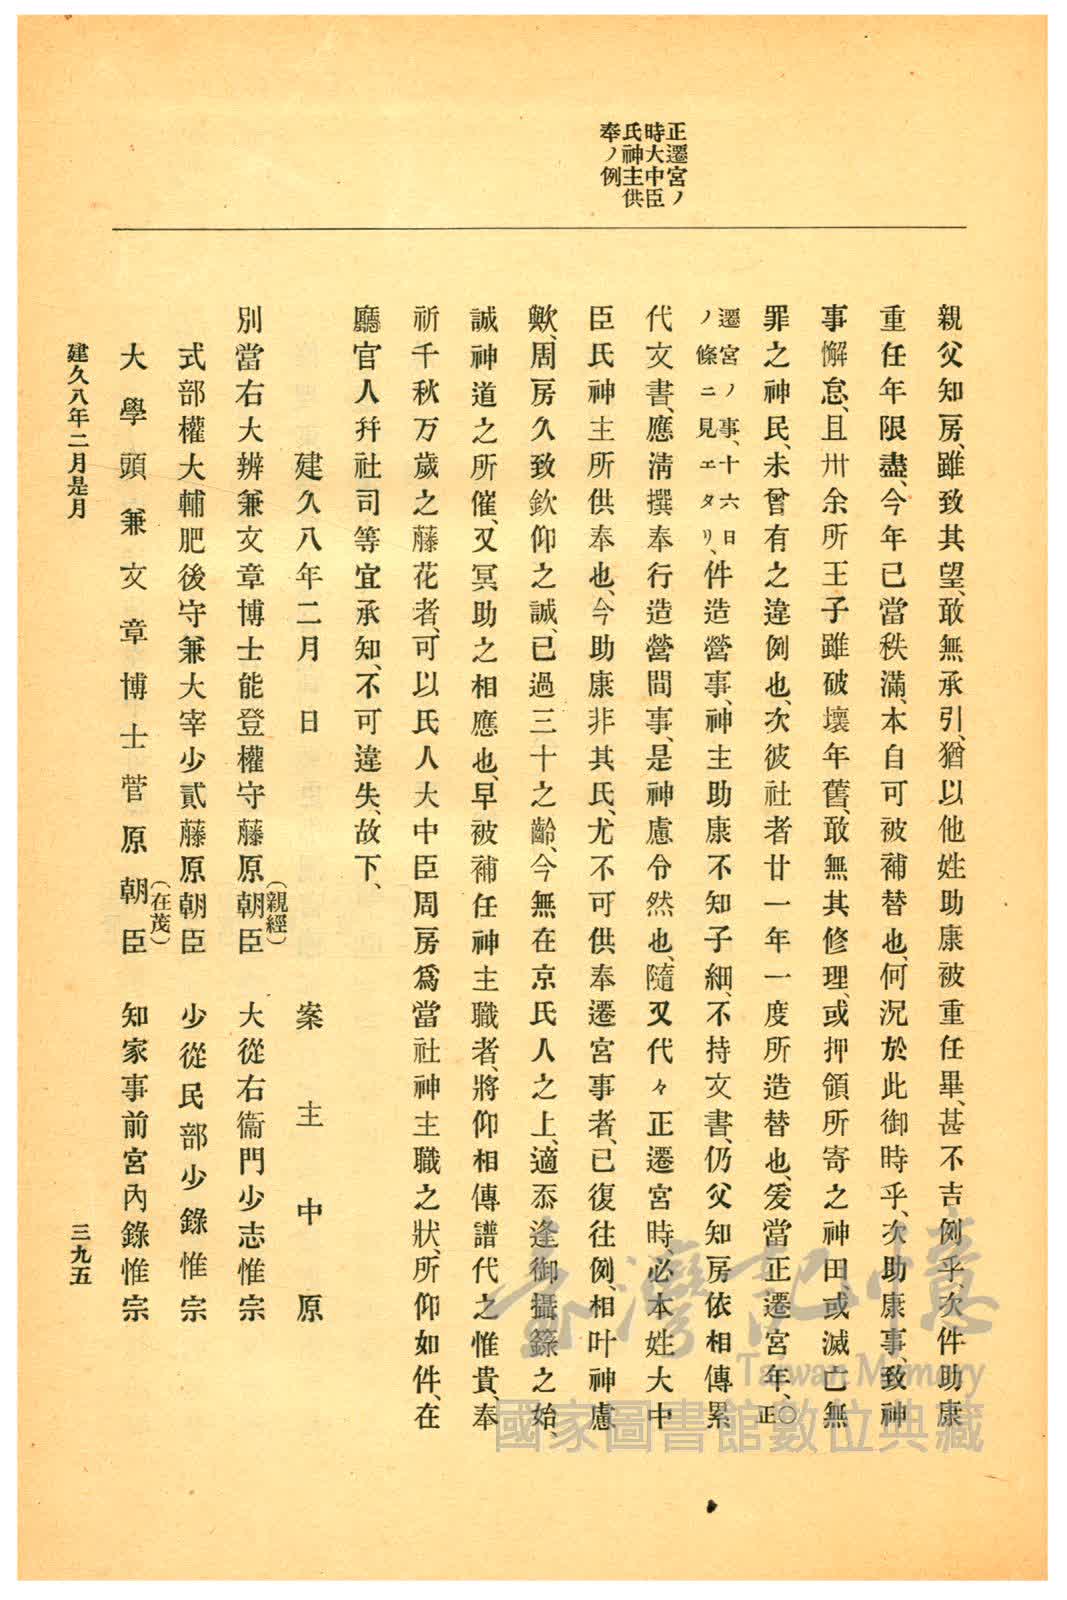 正遷宮ノ
時大中臣
氏神主供
奉ノ例
親父知房、雖致其望、敢無承引、猶以他姓助康被重任畢、甚不吉例乎、次件助康
重任年限盡、今年已當秩滿、本自可被補替也、何況於此御時乎、次助康事、致神
事懈怠、且卅余所王子雖破壞年舊、敢無其修理、或押領所寄之神田、或滅亡無
罪之神民、未曾有之違例也、次彼社者廿一年一度所造替也、爰當正遷宮年、○正
遷宮ノ事、十六日
ノ條ニ見エタリ、件造營事、神主助康不知子細、不持文書、仍父知房依相傳累
代文書、應淸撰奉行造營間事、是神慮令然也、隨又代々正遷宮時必本姓大中
臣氏神主所供奉也、今助康非其氏、尤不可供奉遷宮事者、已復往例、相叶神慮
歟、周房久致欽仰之誠、已過三十之齡、今無在京氏人之上、適忝逢御攝籙之始、
誠神道之所催、又冥助之相應也、早被補任神主職者、將仰相傳譜代之惟貴、奉
祈千秋万歲之藤花者、可以氏人大中臣周房爲當社神主職之狀、所仰如件、在
廳官人幷社司等宜承知、不可違失、故下、
建久八年二月　日　案主中原
別當右大辨兼文章博士能登權守藤原朝臣（親經）　大從右衞門少志惟宗
式部權大輔肥後守兼大宰少貳藤原朝臣　少從民部少錄惟宗
大學頭兼文章博士菅原朝臣（在茂）　知家事前宮內錄惟宗
建久八年二月是月
三九五
臺灣記憶
Taiwan Memory
國家圖書館數位典藏